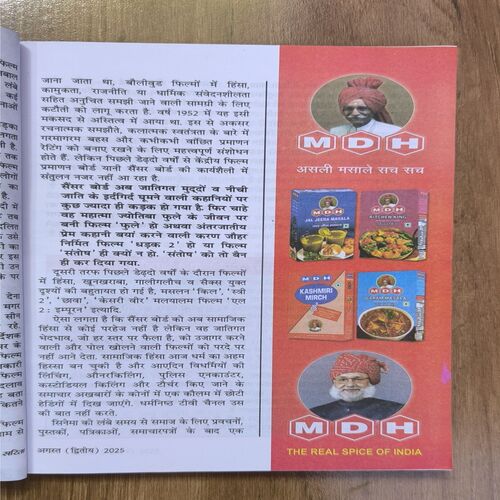 जाना जाता था, बौलीवुड फिल्मों में हिंसा,
कामुकता, राजनीति या धार्मिक संवेदनशीलता
सहित अनुचित समझी जाने वाली सामग्री के लिए
कटौती को लागू करता है. वर्ष 1952 में यह इसी
मकसद से अस्तित्व में आया था. इस से अकसर
रचनात्मक समझौते, कलात्मक स्वतंत्रता के बारे में
गरमागरम बहस और कभीकभी वांछित प्रमाणन
रेटिंग को बनाए रखने के लिए महत्त्वपूर्ण संशोधन
होते हैं. लेकिन पिछले डेढ़दो वर्षों से केंद्रीय फिल्म
प्रमाणन बोर्ड यानी सैंसर बोर्ड की कार्यशैली में
संतुलन नजर नहीं आ रहा है.
सैंसर बोर्ड अब जातिगत मुद्दों व नीची
जाति के इर्दगिर्द घूमने वाली कहानियों पर
कुछ ज्यादा ही कड़क हो गया है. फिर चाहे
वह महात्मा ज्योतिबा फुले के जीवन पर
बनी फिल्म 'फुले' हो अथवा अंतरजातीय
प्रेम कहानी बयां करने वाली करण जौहर
निर्मित फिल्म 'धड़क 2' हो या फिल्म
'संतोष' ही क्यों न हो. 'संतोष' को तो बैन
ही कर दिया गया.
दूसरी तरफ पिछले डेढ़दो वर्षों के दौरान फिल्मों
में हिंसा, खूनखराबा, गालीगलौच व सैक्स युक्त
दृश्यों की बहुतायत हो गई है. मसलन 'किल', 'स्त्री
2', 'छावा', 'केसरी वीर' मलयालम फिल्म 'एल
2 : इम्पूरन' इत्यादि.
ऐसा लगता है कि सैंसर बोर्ड को अब सामाजिक
हिंसा से कोई परहेज नहीं है लेकिन वह जातिगत
भेदभाव, जो हर स्तर पर फैला है, को उजागर करने
वाली और पोल खोलने वाली फिल्मों को परदे पर
नहीं आने देता. सामाजिक हिंसा आज धर्म का अहम
हिस्सा बन चुकी है और आएदिन विधर्मियों की
लिंचिंग, औनरकिलिंग, पुलिस एनकाउंटर,
कस्टोडियल किलिंग और टौर्चर किए जाने के
समाचार अखबारों के कोनों में एक कौलम में छोटी
हैडिंगों में दिख जाएंगे. धर्मनिष्ठ टीवी चैनल उस
की बात नहीं करते.
सिनेमा की लंबे समय से समाज के लिए प्रवचनों,
पुस्तकों, पत्रिकाओं, समाचारपत्रों के बाद एक
अगस्त (द्वितीय) 2025
MDH
असली मसाले सच सच
MDH
JAL JEERA MASALA
MDH
KITCHEN KING
MDH
KASHMIRI
MIRCH
MDH
MDH
THE REAL SPICE OF INDIA
सरिता